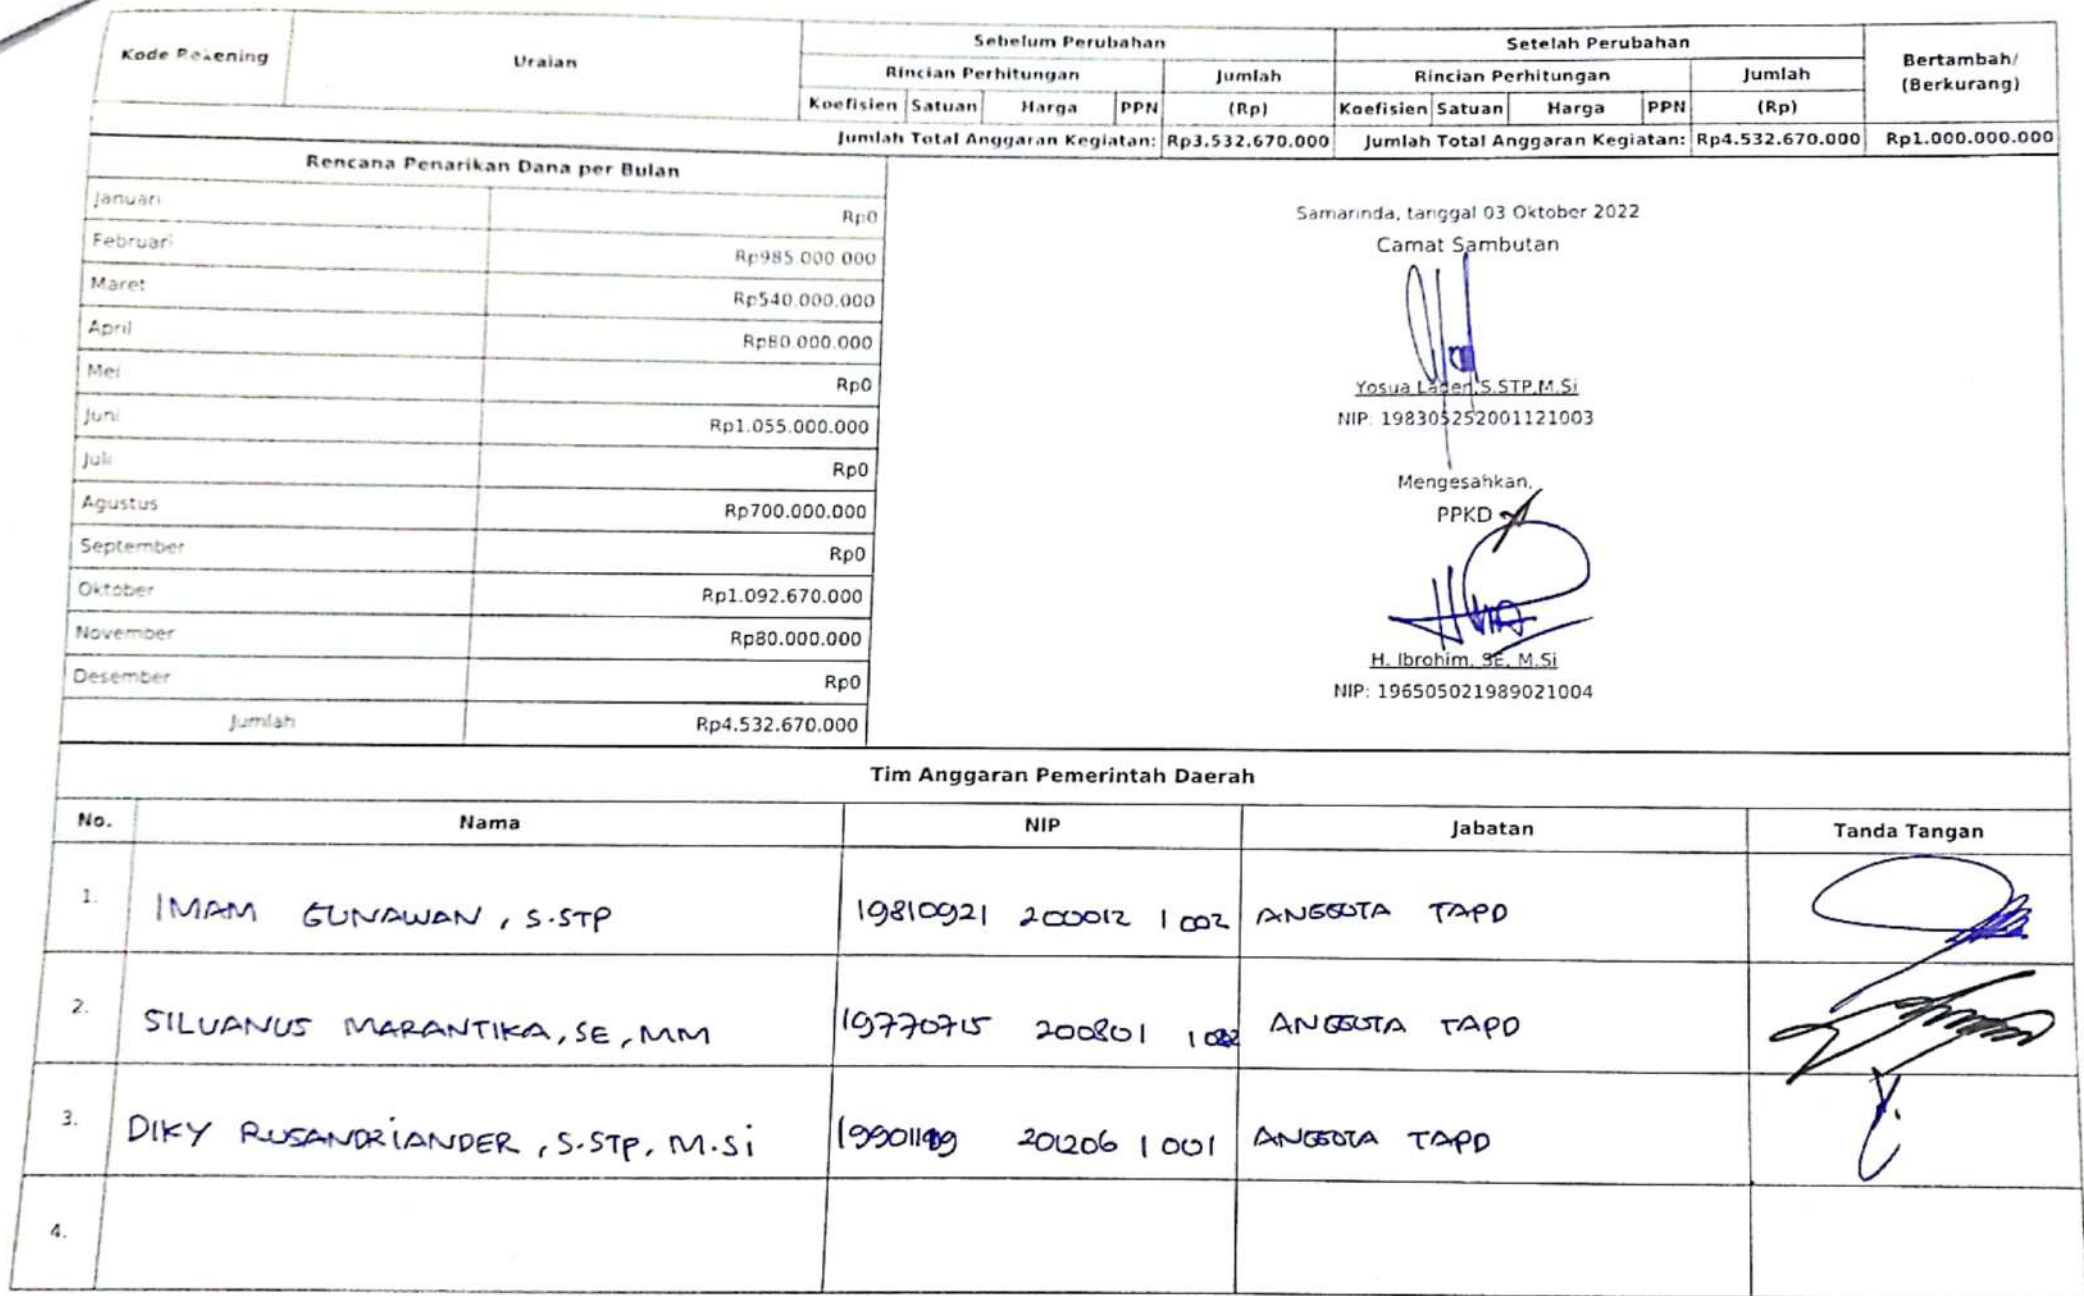 Kode Rekening Uraian Sebelum Perubahan Setelah Perubahan Bertambah/ (Berkurang)
Rincian Perhitungan Jumlah Rincian Perhitungan Jumlah
Koefisien Satuan Harga PPN (Rp) Koefisien Satuan Harga PPN (Rp)
Jumlah Total Anggaran Kegiatan: Rp3.532.670.000 Jumlah Total Anggaran Kegiatan: Rp4.532.670.000 Rp1.000.000.000
Rencana Penarikan Dana per Bulan
Januari Rp0
Februari Rp985.000.000
Maret Rp540.000.000
April Rp80.000.000
Mei Rp0
Juni Rp1.055.000.000
Juli Rp0
Agustus Rp700.000.000
September Rp0
Oktober Rp1.092.670.000
November Rp80.000.000
Desember Rp0
Jumlah Rp4.532.670.000
Samarinda, tanggal 03 Oktober 2022
Camat Sambutan
Yosua Laden,S.STP,M.Si
NIP: 198305252001121003
Mengesahkan,
PPKD
H. Ibrohim, SE, M.Si
NIP: 196505021989021004
Tim Anggaran Pemerintah Daerah
No. Nama NIP Jabatan Tanda Tangan
1. IMAM GUNAWAN, S.STP 19810921 200012 1 002 ANGGOTA TAPD
2. SILUANUS MARANTIKA, SE, MM 19770715 200801 ANGGOTA TAPD
3. DIKY RUSANDRIANDER, S.STP, M.Si 201206 1 001 ANGGOTA TAPD
4.